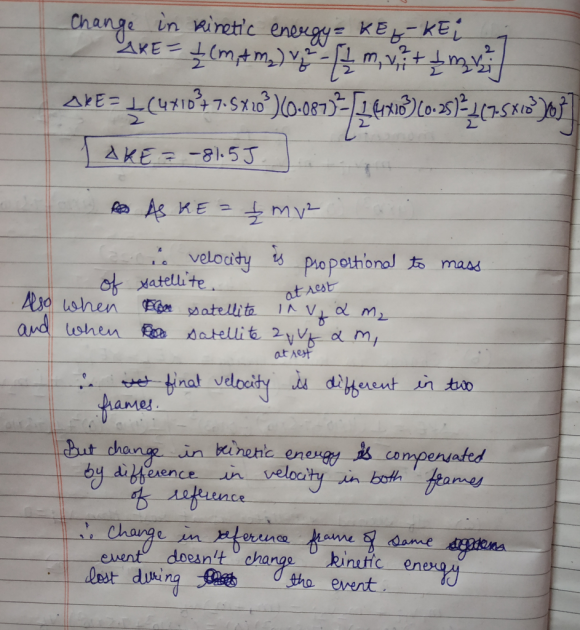 Change in kinetic energy = KE_f - KE_i
ΔKE = 1/2 (m₁+m₂) v_f² - [1/2 m₁ v₁ᵢ² + 1/2 m₂ v₂ᵢ²]
ΔKE = 1/2 (4×10³ + 7.5×10³)(0.087)² - [1/2 (4×10³)(0.25)² - 1/2 (7.5×10³)(0)²]
ΔKE = -81.5 J
As KE = 1/2 mv²
∴ velocity is proportional to mass
of satellite.
Also when satellite 1 at rest ^ v_f ∝ m₂
and when satellite 2 at rest v_f ∝ m₁
∴ final velocity is different in two
frames.
But change in kinetic energy is compensated
by difference in velocity in both frames
of reference
∴ Change in reference frame of same
event doesn't change kinetic energy
lost during the event.